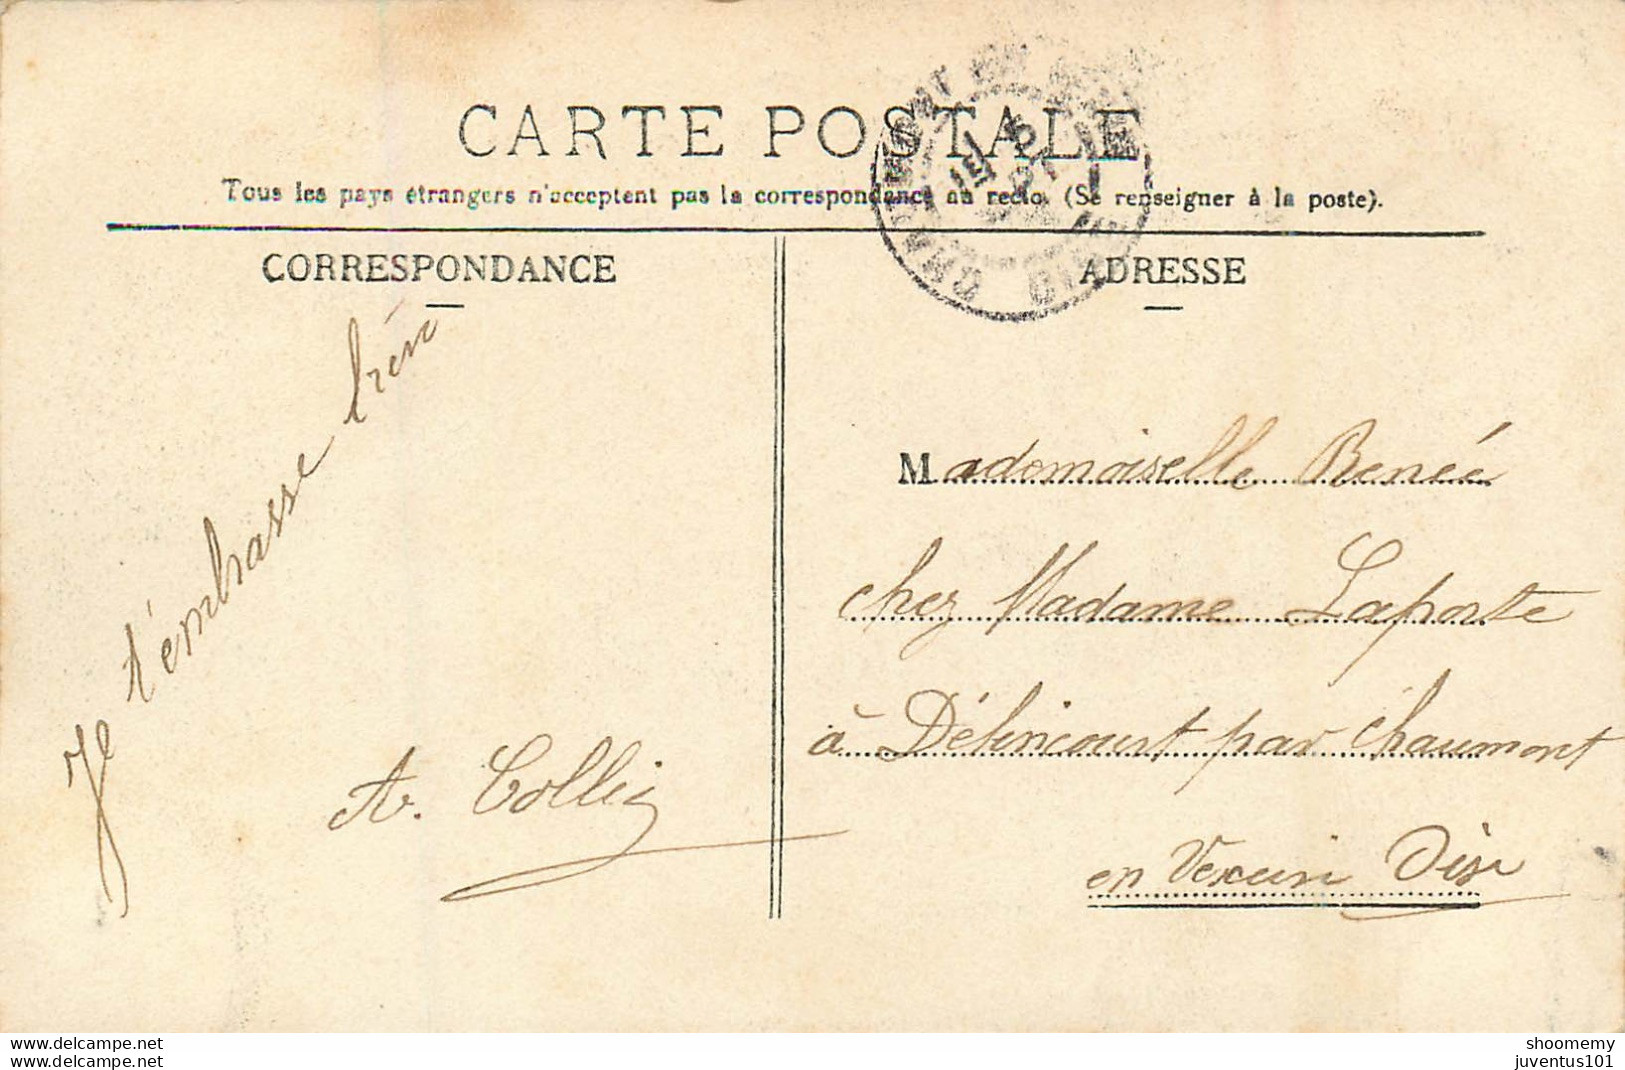 CARTE POSTALE
Tous les pays étrangers n'acceptent pas la correspondance au recto. (Se renseigner à la poste).
CORRESPONDANCE
ADRESSE
Je t'embrasse bién
A. Collin
Mademoiselle Renée
chez Madame Laporte
à Délincourt par Chaumont
en Vexin Oise
delcampe.net
shoomemy
delcampe.net
juventus101